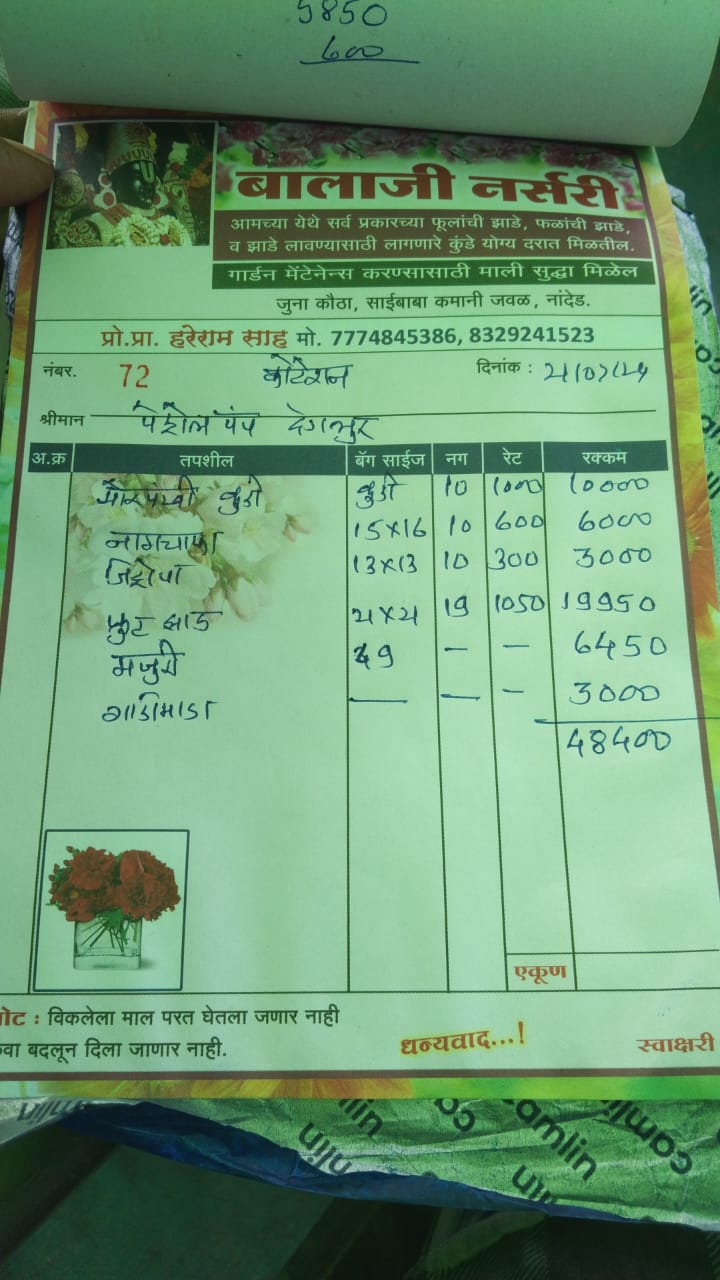 5850
600
बालाजी नर्सरी
आमच्या येथे सर्व प्रकारच्या फूलांची झाडे, फळांची झाडे,
व झाडे लावण्यासाठी लागणारे कुंडे योग्य दरात मिळतील.
गार्डन मेंटेनेन्स करण्सासाठी माली सुद्धा मिळेल
जुना कौठा, साईबाबा कमानी जवळ, नांदेड.
प्रो.प्रा. हरेराम साह मो. 7774845386, 8329241523
नंबर. 72 कोटेशन दिनांक :
श्रीमान पेट्रोल पंप देगलुर
अ.क्र तपशील बॅग साईज नग रेट रक्कम
मोरपंखी कुंडी कुंडी 10 1000 10000
नागचाफा 15×16 10 600 6000
13×13 10 300 3000
फ्रुट झाड 21×21 19 1050 19950
मजुरी 49 – – 6450
गाडीभाडा — — – 3000
48400
एकूण
नोट : विकलेला माल परत घेतला जाणार नाही
बदलून दिला जाणार नाही.
धन्यवाद...!
स्वाक्षरी
camlin
camlin